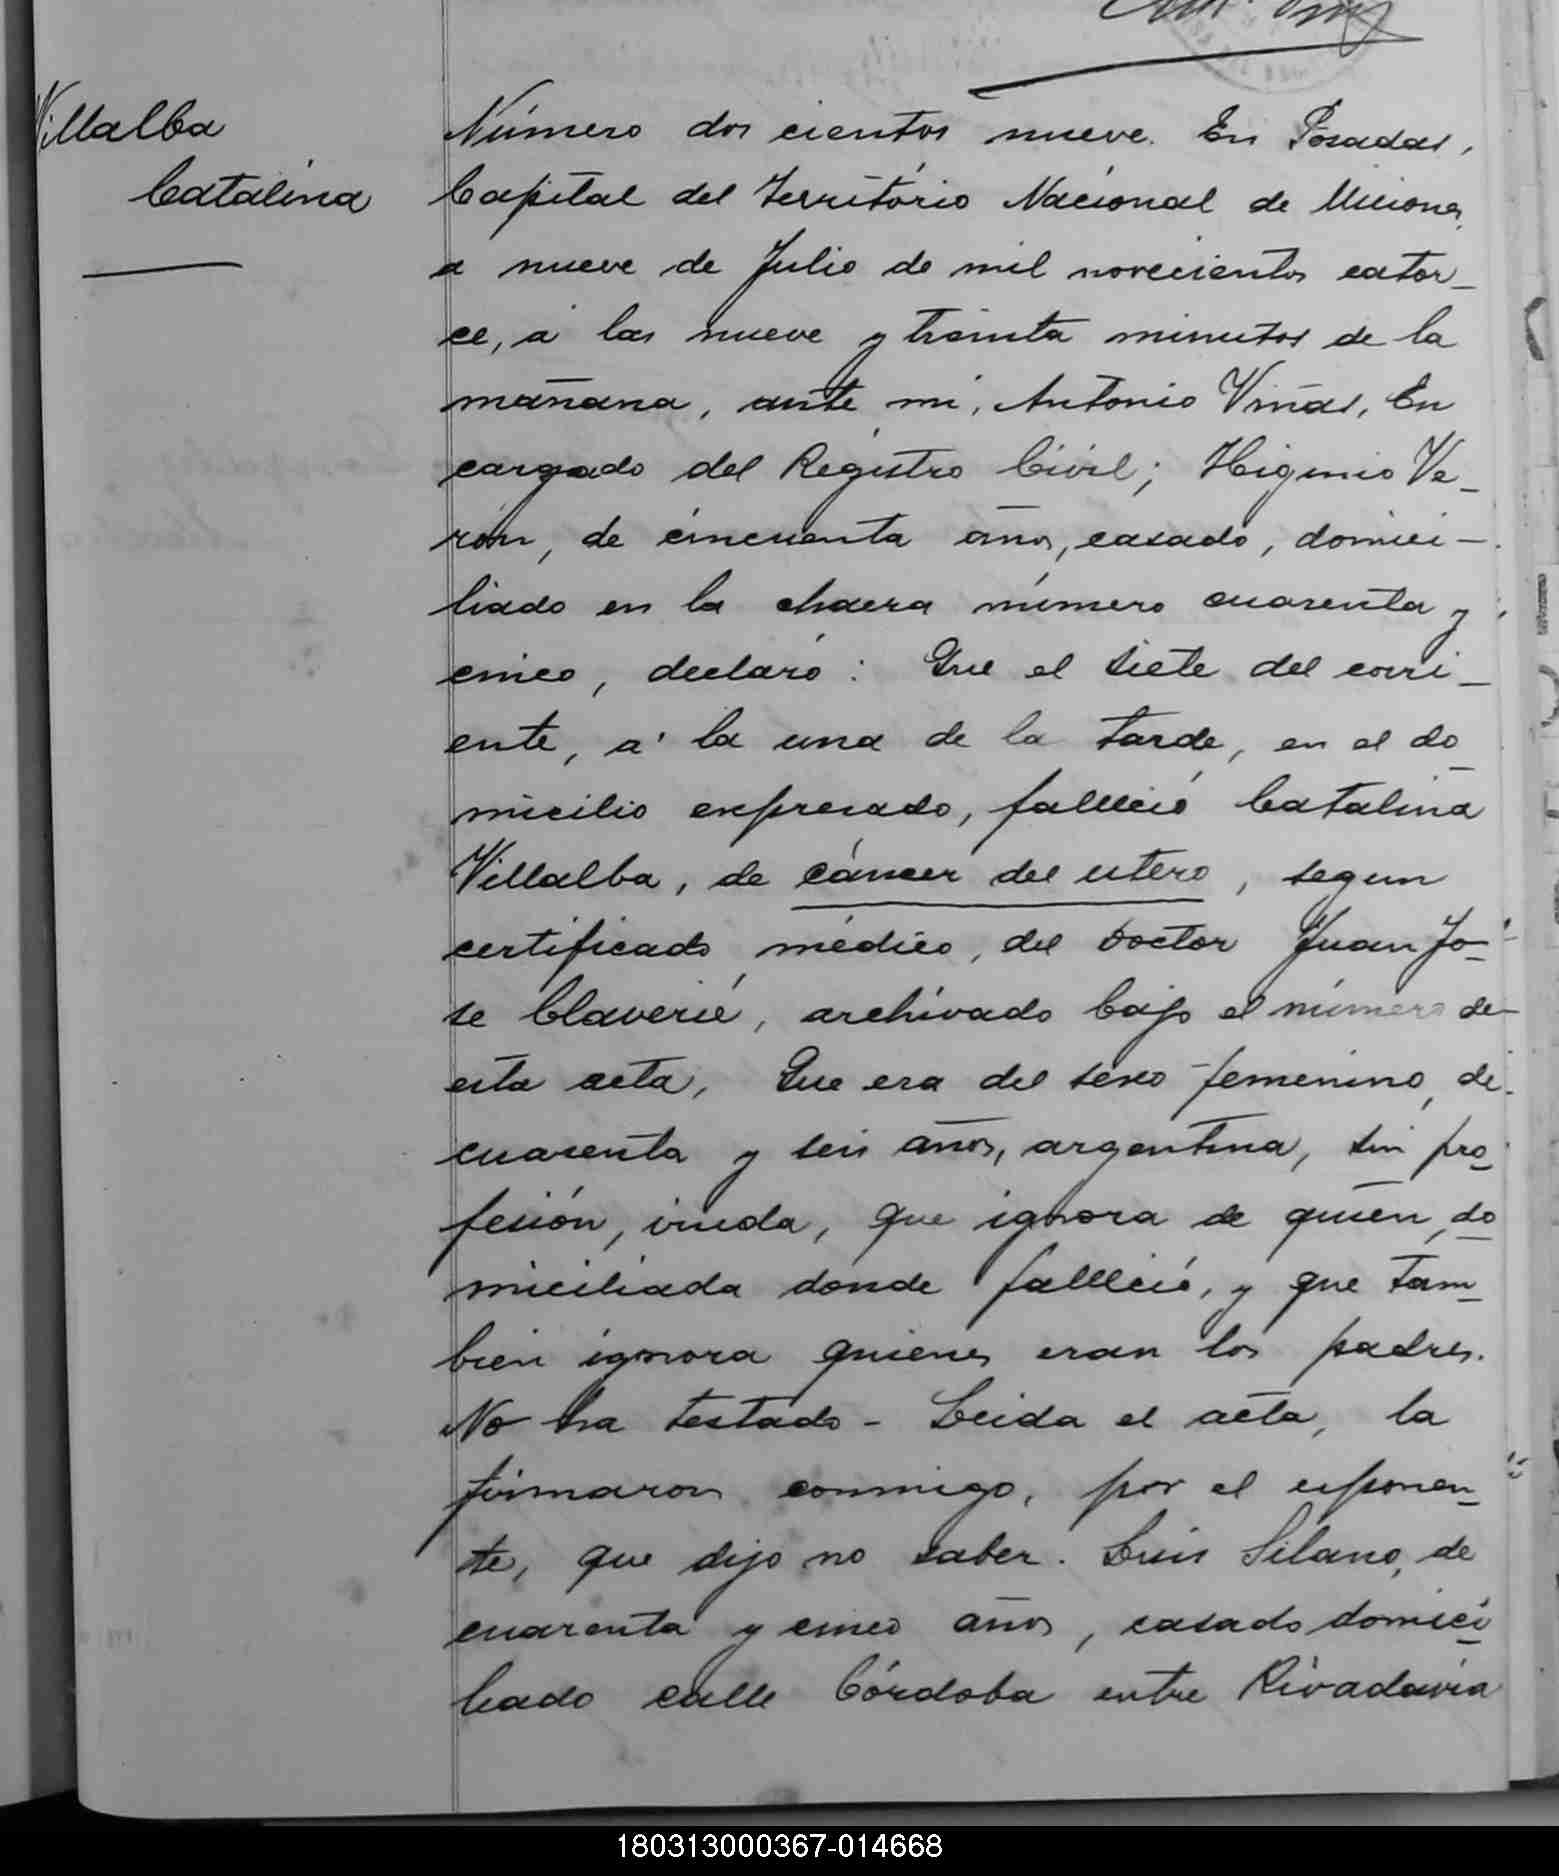 Villalba
Catalina
Número dos cientos nueve. En Posadas,
Capital del Territorio Nacional de Misiones,
a nueve de Julio de mil novecientos cator_
ce, á las nueve y treinta minutos de la
mañana, ante mi, Antonio Viñas, En
cargado del Registro Civil; Higinio Ve_
rón, de cincuenta años, casado, domici-
liado en la chacra número cuarenta y
cinco, declaró: Que el siete del corri_
ente, á la una de la tarde, en el do_
micilio expresado, falleció Catalina
Villalba, de cáncer del utero, segun
certificado médico, del Doctor Juan Jo_
se Claverié, archivado bajo el número de
esta acta, Que era del sexo femenino, de
cuarenta y seis años, argentina, sin pro_
fesión, viuda, que ignora de quien, do_
miciliada donde falleció, y que tam_
bien ignora quienes eran los padres.
No ha testado - Leida el acta, la
firmaron conmigo, por el exponen_
te, que dijo no saber. Luis Silano, de
cuarenta y cinco años, casado domici_
liado calle Córdoba entre Rivadavia
180313000367-014668